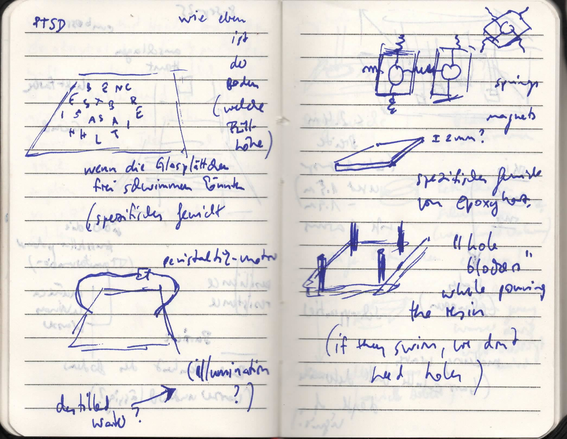 PTSD
wie eben
ist
der
Boden
(welche
Füll
höhe)
wenn die Glasplättchen
frei schwimmen könnten
(spezifisches Gewicht
peristaltik-motor
(illumination
?)
destilled
water?
springs
magnets
± 2mm?
spezifisches Gewicht
von Epoxyharz.
"hole
blockers"
while pouring
the resin
(if they swim, we don't
need holes)